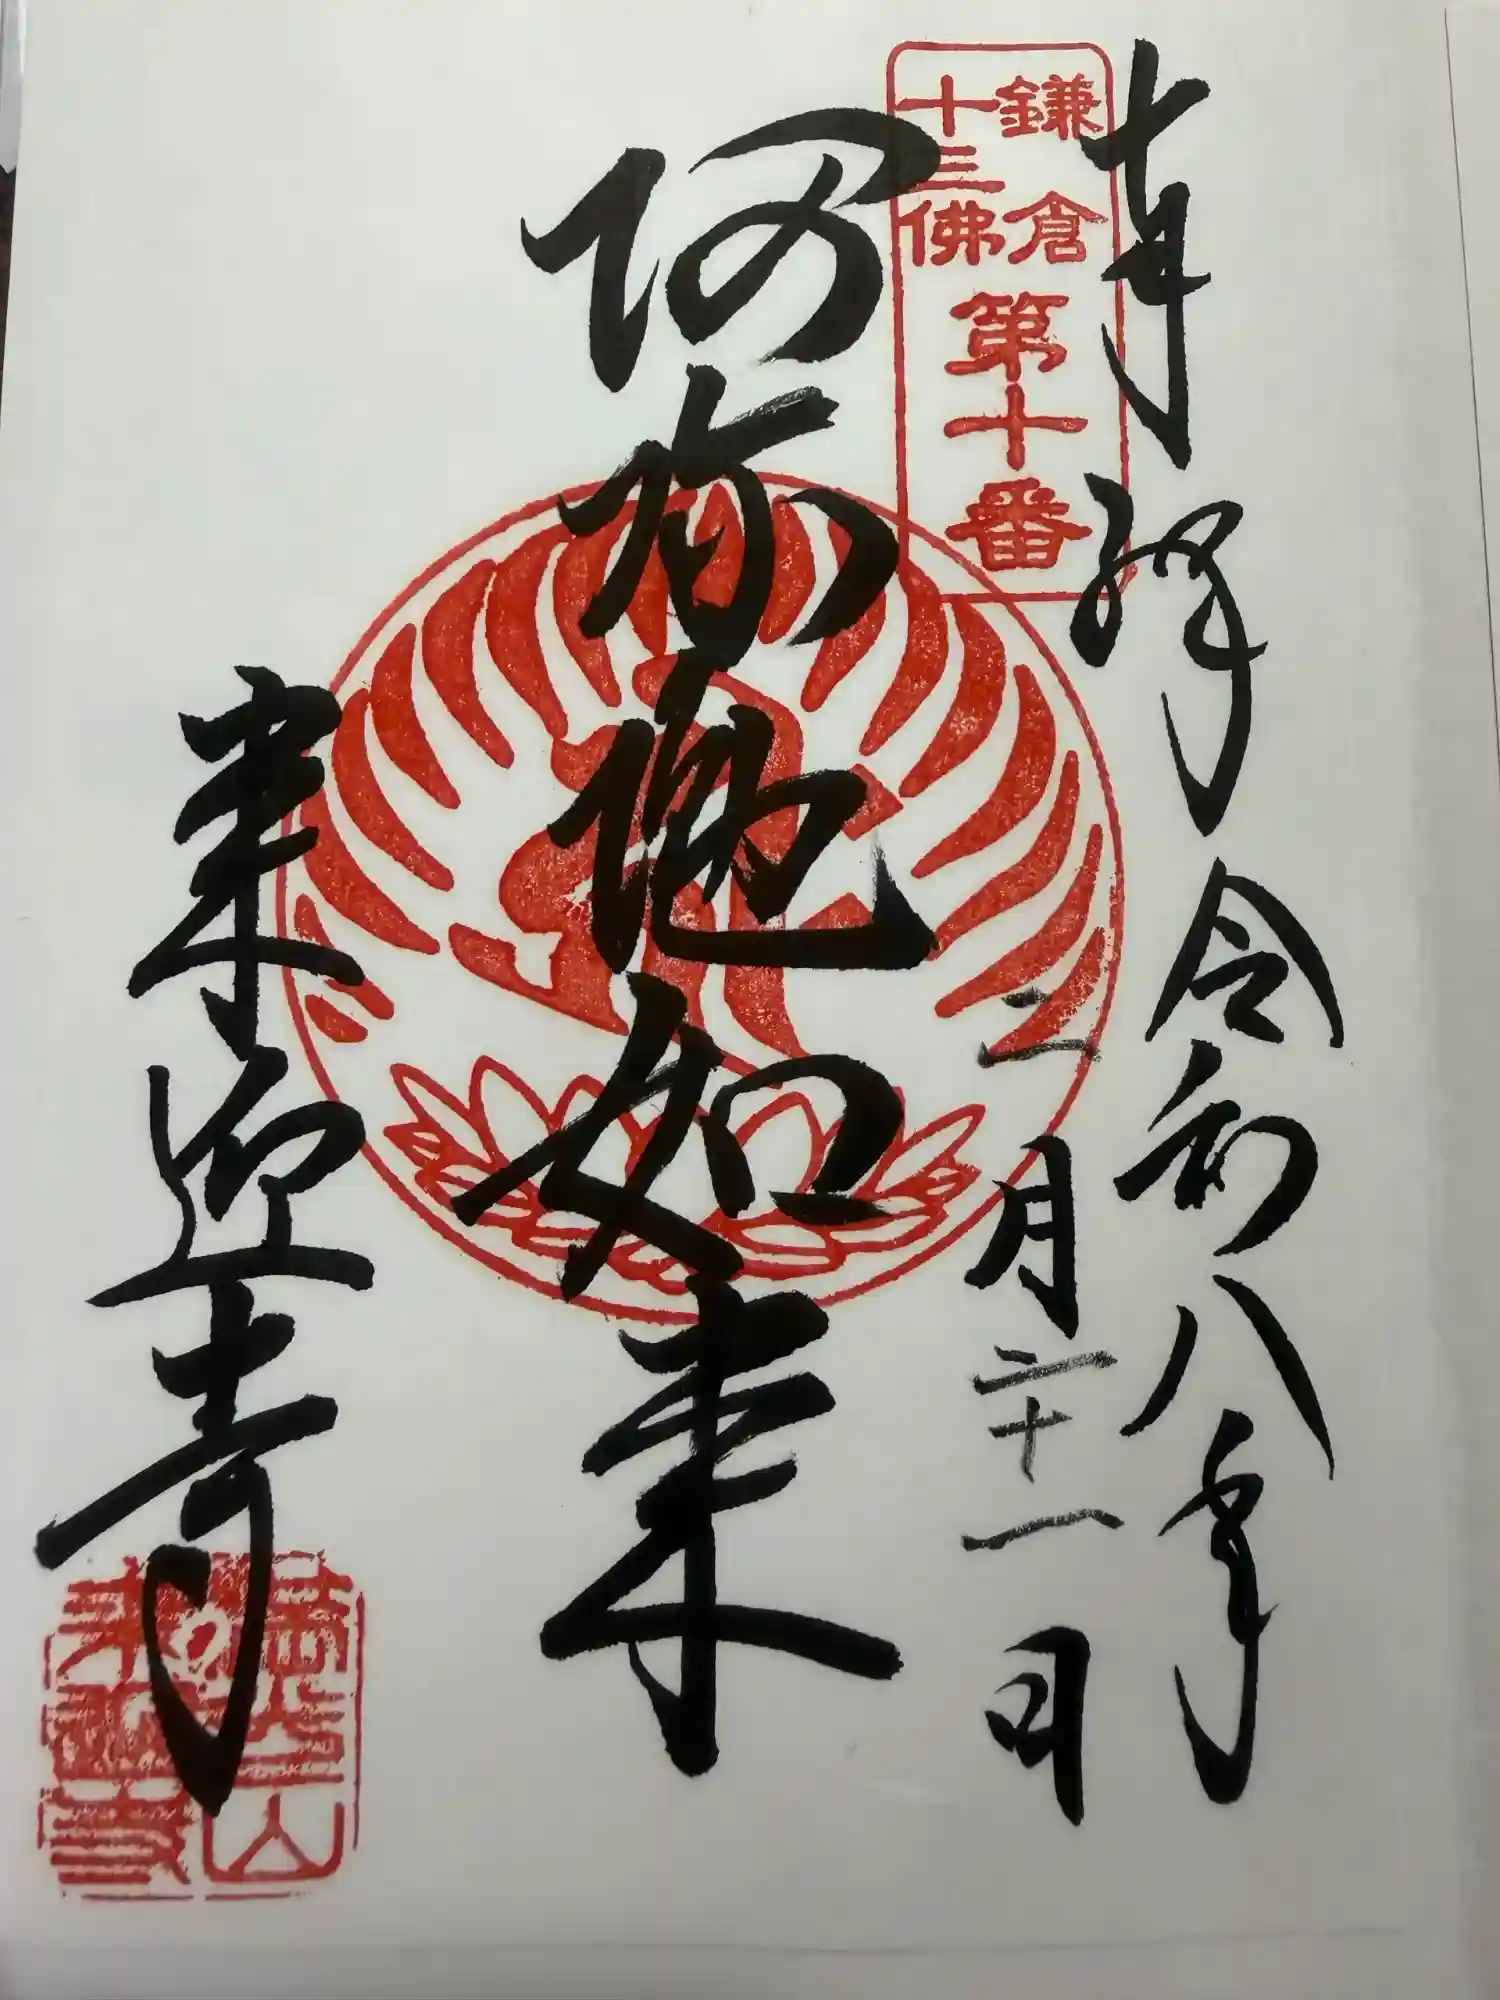 奉拝 令和八年
二月二十一日
鎌倉
十三佛
第十番
阿弥陀如来
来迎寺